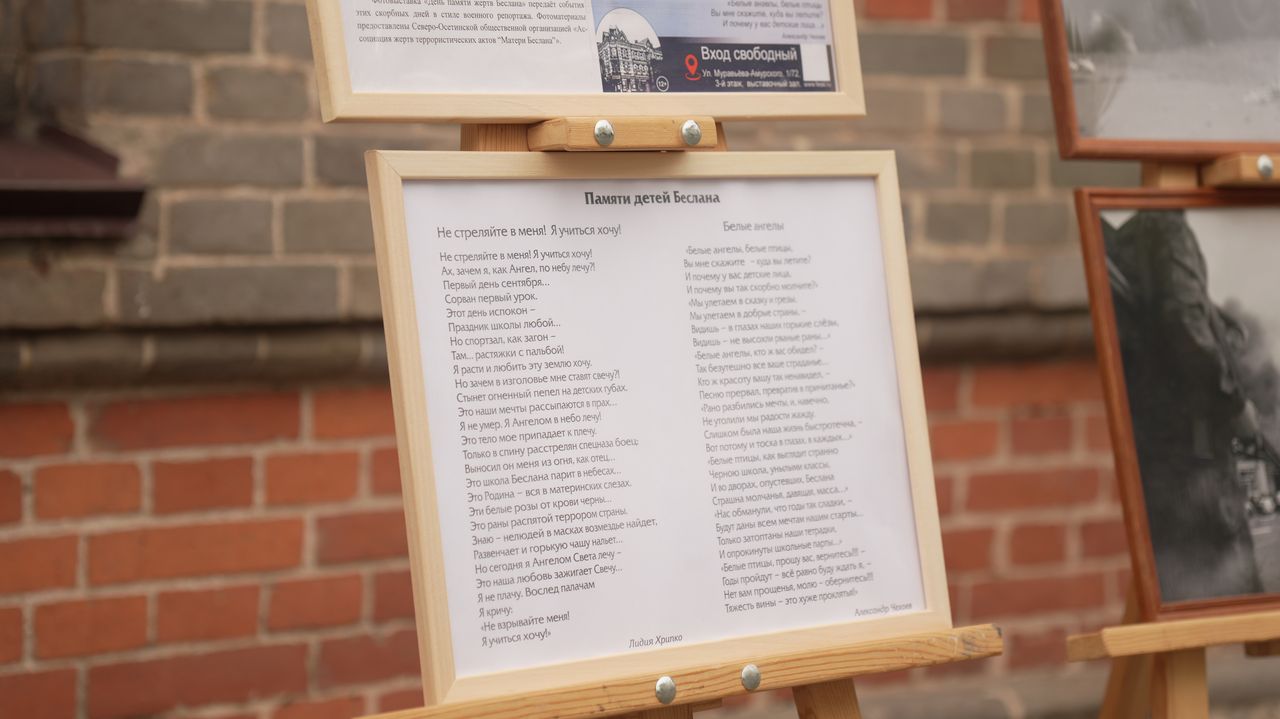 Фотовыставка «День памяти жертв Беслана» передаёт события
этих скорбных дней в стиле военного репортажа. Фотоматериалы
предоставлены Северо-Осетинской общественной организацией «Ас-
социация жертв террористических актов “Матери Беслана”».
«Белые ангелы, белые птицы
Вы мне скажите, куда вы летите?
И почему у вас детские лица...»
Александр Чекоев
Вход свободный
Ул. Муравьёва-Амурского, 1/72,
3-й этаж, выставочный зал.
12+
Памяти детей Беслана
Не стреляйте в меня! Я учиться хочу!
Не стреляйте в меня! Я учиться хочу!
Ах, зачем я, как Ангел, по небу лечу?!
Первый день сентября...
Сорван первый урок.
Этот день испокон –
Праздник школы любой...
Но спортзал, как загон –
Там... растяжки с пальбой!
Я расти и любить эту землю хочу.
Но зачем в изголовье мне ставят свечу?!
Стынет огненный пепел на детских губах.
Это наши мечты рассыпаются в прах...
Я не умер. Я Ангелом в небо лечу!
Это тело мое припадает к плечу.
Только в спину расстрелян спецназа боец:
Выносил он меня из огня, как отец...
Это школа Беслана парит в небесах...
Это Родина – вся в материнских слезах.
Эти белые розы от крови черны...
Это раны распятой террором страны.
Знаю – нелюдей в масках возмездье найдет,
Развенчает и горькую чашу нальет...
Но сегодня я Ангелом Света лечу –
Это наша любовь зажигает Свечу...
Я не плачу. Вослед палачам
Я кричу:
«Не взрывайте меня!
Я учиться хочу!»
Лидия Хрипко
Белые ангелы
«Белые ангелы, белые птицы,
Вы мне скажите – куда вы летите?
И почему у вас детские лица,
И почему вы так скорбно молчите?»
«Мы улетаем в сказку и грезы,
Мы улетаем в добрые страны, –
Видишь – в глазах наших горькие слёзы,
Видишь – не высохли рваные раны...»
«Белые ангелы, кто ж вас обидел? –
Так безутешно все ваше страданье...
Кто ж красоту вашу так ненавидел, –
Песню прервал, превратив в причитанье?»
«Рано разбились мечты, и, навечно,
Не утолили мы радости жажду.
Слишком была наша жизнь быстротечна, –
Вот потому и тоска в глазах, в каждых...»
«Белые птицы, как выглядит странно
Черною школа, унылыми классы,
И во дворах, опустевших, Беслана
Страшна молчанья, давящая, масса...»
«Нас обманули, что годы так сладки, –
Будут даны всем мечтам нашим старты...
Только затоптаны наши тетрадки,
И опрокинуты школьные парты...»
«Белые птицы, прошу вас, вернитесь!!! –
Годы пройдут – всё равно буду ждать я, –
Нет вам прощенья, молю – обернитесь!!!
Тяжесть вины – это хуже проклятья!»
Александр Чекоев